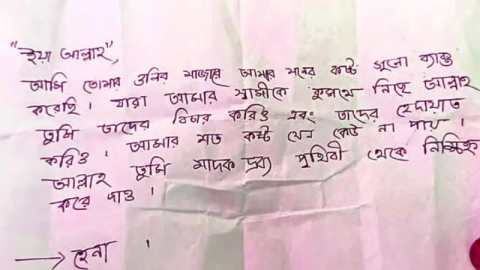 "ইয়া আল্লাহ",
আমি তোমার ওলির মাজারে আমার মনের কষ্ট গুলো ব্যক্ত
করেছি। যারা আমার স্বামীকে কুপথে নিছে আল্লাহ
তুমি তাদের বিচার করিও এবং তাদের হেদায়াত
করিও। আমার মত কষ্ট যেন কেউ না পায়।
আল্লাহ তুমি মাদক দ্রব্য পৃথিবী থেকে নিশ্চিহ্ন
করে দাও।
→ হেনা ।